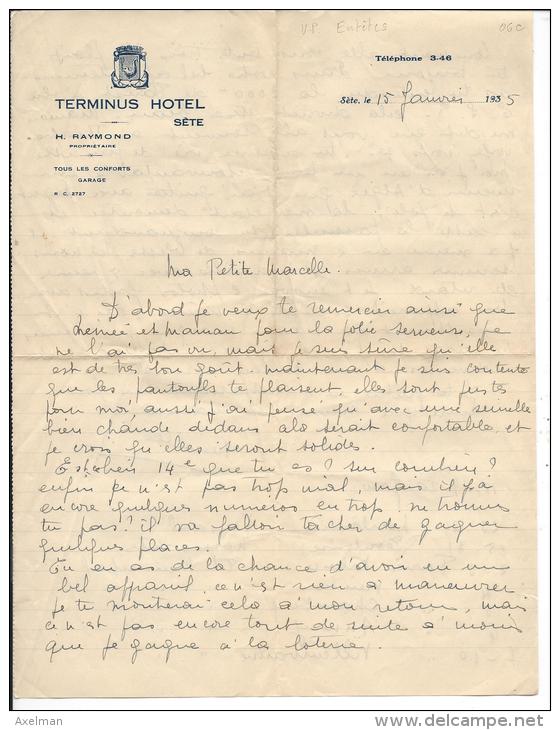 V.P. Entêtes
06C
Téléphone 3-46
TERMINUS HOTEL
SÈTE
Sète, le 15 Janvier 1935
H. RAYMOND
PROPRIÉTAIRE
TOUS LES CONFORTS
GARAGE
R. C. 2727
Ma Petite Marcelle.
D'abord je veux te remercier ainsi que
et maman pour la jolie serveuse, je
ne l'ai pas vu, mais je suis sûre qu'elle
est de très bon goût. maintenant je suis contente
que les pantoufles te plaisent, elles sont justes
pour moi, aussi j'ai pensé qu'avec une semelle
bien chaude dedans alo serait confortable, et
je crois qu'elles seront solides.
Est-ce bien 14e que tu es? sur combien?
enfin ce n'est pas trop mal, mais il y a
encore quelques numeros en trop. ne trouves
tu pas? il va falloir tacher de gagner
quelques places.
Tu en as de la chance d'avoir en un
bel appareil. ce n'est rien a maneuvrer
je te montrerai celo a mon retour, mais
ce n'est pas encore tout de suite a moins
que je gagne à la loterie.
Axelman
delcampe.net